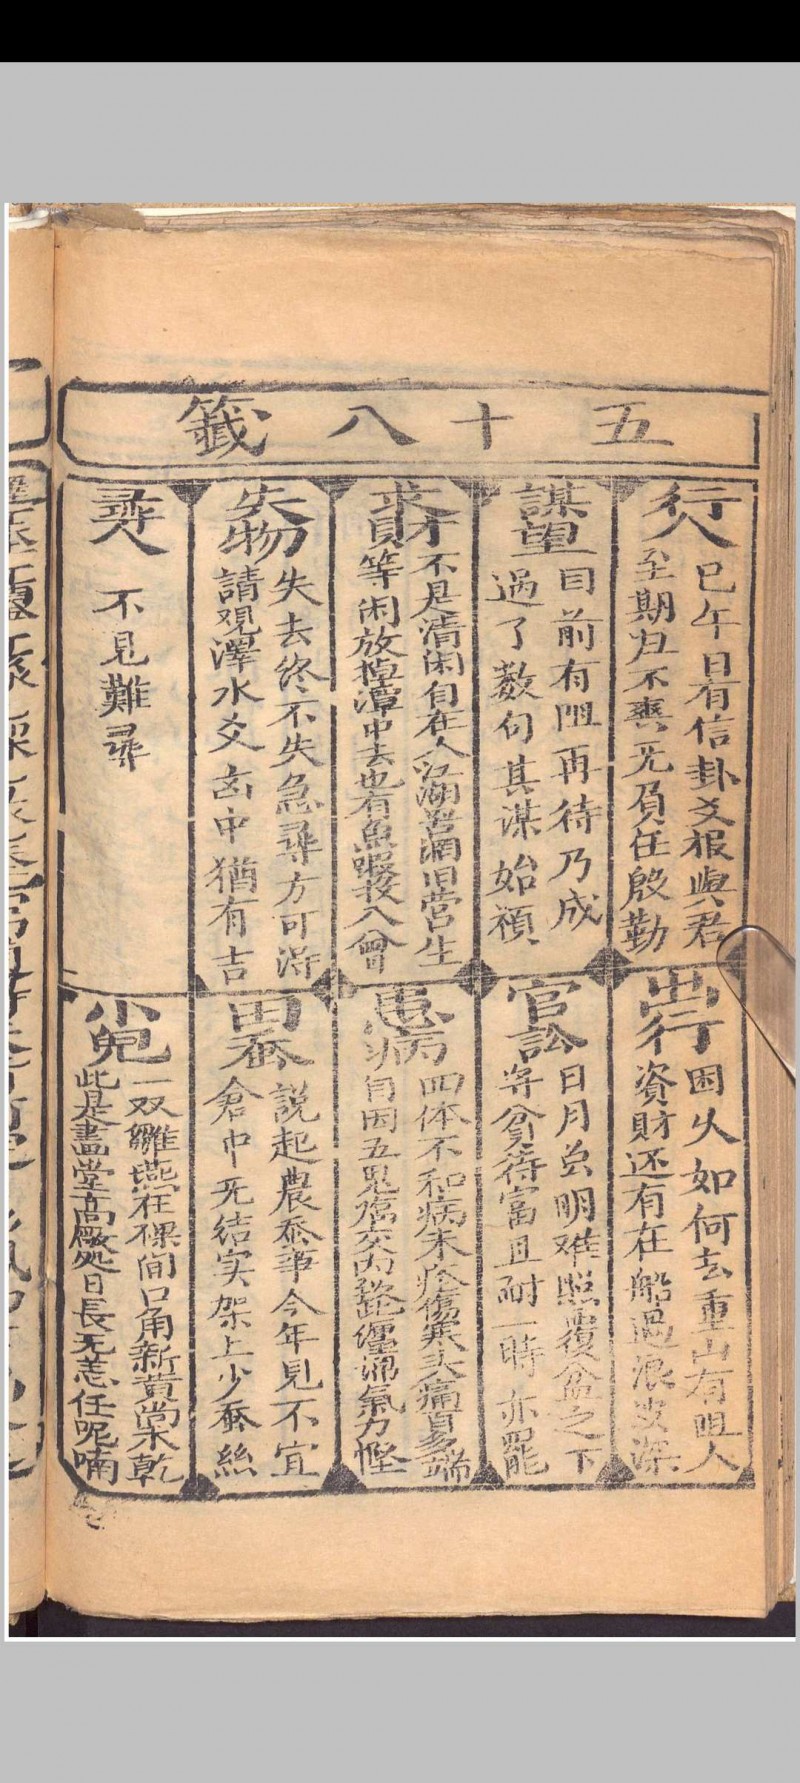 五十八籤
行人
巳午日有信卦爻报與君
至期归不爽无負任殷勤
謀望
目前有阻再待乃成
過了数旬其谋始禎
求財
不是清闲自在人江湖苦涠旧营生
等闲放掉潭中去也有魚蝦投入罾
失物
失去终不失急尋方可淂
請观澤水爻玄中猶有吉
尋人
不見難尋
出行
困乆如何去重山有阻人
資財还有在船過浪波深
官訟
日月虽明难照覆盆之下
将貧待富且耐一時亦罷
患病
四体不和病未痊傷寒头痛百多端
自因五鬼
氣力慳
田蚕
説起農蚕事今年見不宜
倉中无结实架上少蚕絲
小兒
一双雛燕在樑间口角新黄棠木乾
此是畫堂高廠処日長无恙任呢喃